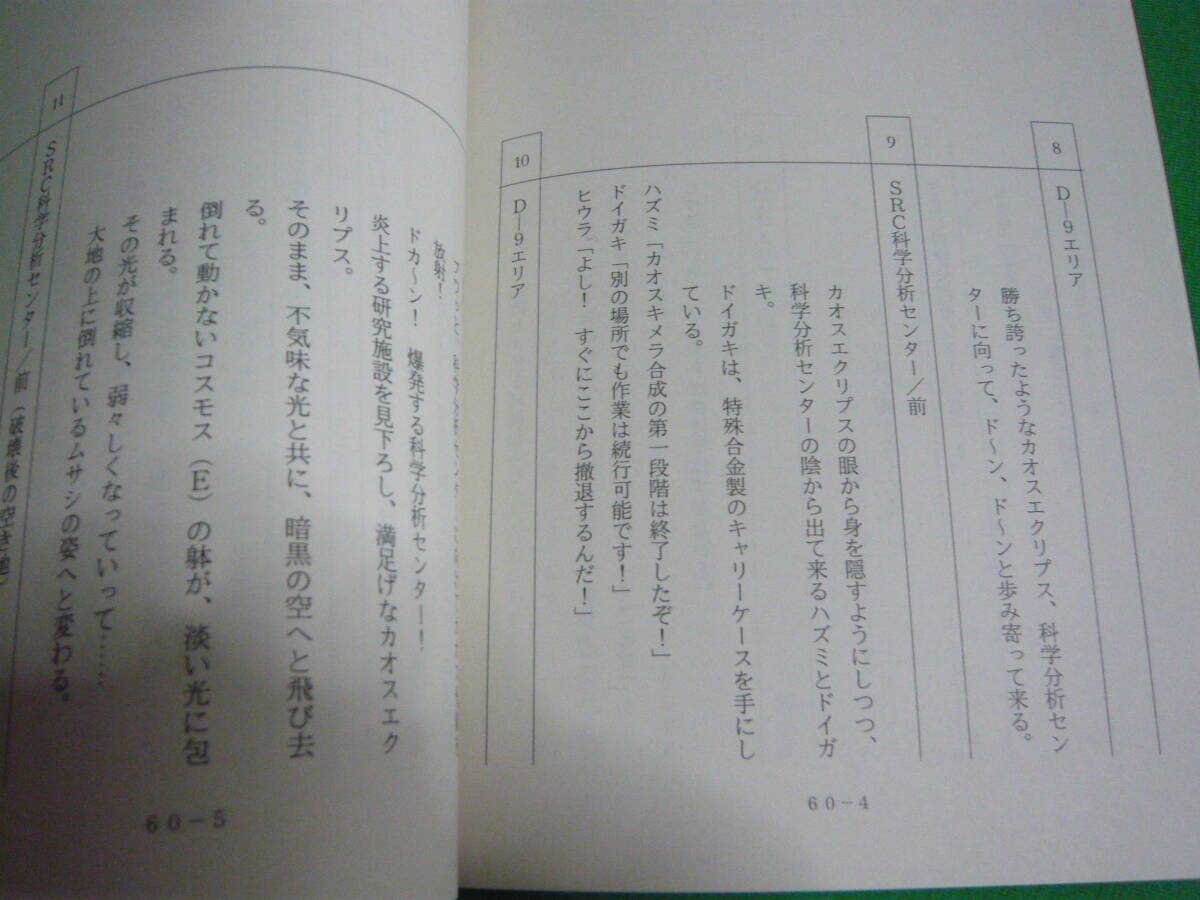 8
D―9エリア
勝ち誇ったようなカオスエクリプス、科学分析セン
ターに向って、ド～ン、ド～ンと歩み寄って来る。
9
SRC科学分析センター／前
カオスエクリプスの眼から身を隠すようにしつつ、
科学分析センターの陰から出て来るハズミとドイガ
キ。
ドイガキは、特殊合金製のキャリーケースを手にし
ている。
ハズミ「カオスキメラ合成の第一段階は終了したぞ！」
ドイガキ「別の場所でも作業は続行可能です！」
ヒウラ「よし！　すぐにここから撤退するんだ！」
10
D―9エリア
60－4
放射！
ドカ～ン！　爆発する科学分析センター！
炎上する研究施設を見下ろし、満足げなカオスエク
リプス。
そのまま、不気味な光と共に、暗黒の空へと飛び去
る。
倒れて動かないコスモス（E）の躰が、淡い光に包
まれる。
その光が収縮し、弱々しくなっていって……
大地の上に倒れているムサシの姿へと変わる。
11
SRC科学分析センター／前（破壊後の空き地）
60－5